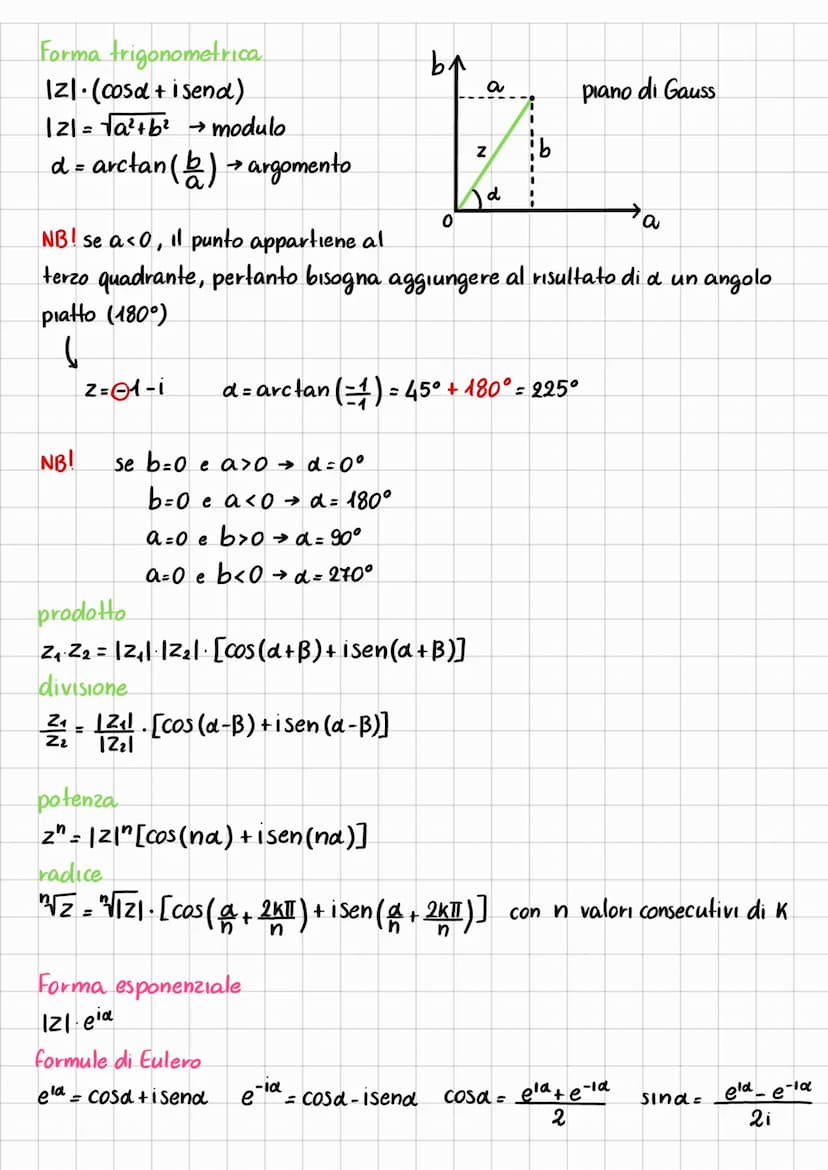 Forma trigonometrica
|z|·(cosα+isenα)
|z| = √a²+b² → modulo
α = arctan(b/a) → argomento
b
a
piano di Gauss
z
b
α
0
a
NB! se a<0, il punto appartiene al
terzo quadrante, pertanto bisogna aggiungere al risultato di α un angolo
piatto (180°)
z=-1-i α=arctan(-1/-1) = 45° + 180° = 225°
NB! se b=0 e a>0 → α=0°
b=0 e a<0 → α= 180°
a=0 e b>0 → α= 90°
a=0 e b<0 → α= 270°
prodotto
z₁·z₂ = |z₁|·|z₂|·[cos(α+β)+isen(α+β)]
divisione
z₁/z₂ = |z₁|/|z₂| · [cos(α-β)+isen(α-β)]
potenza
zⁿ = |z|ⁿ[cos(nα)+isen(nα)]
radice
ⁿ√z = ⁿ√|z| · [cos(α/n + 2kπ/n) + isen(α/n + 2kπ/n)] con n valori consecutivi di K
Forma esponenziale
|z|·e^iα
formule di Eulero
e^iα = cosα+isenα e^-iα = cosα-isenα cosα = e^iα+e^-iα/2 sinα= e^iα-e^-iα/2i